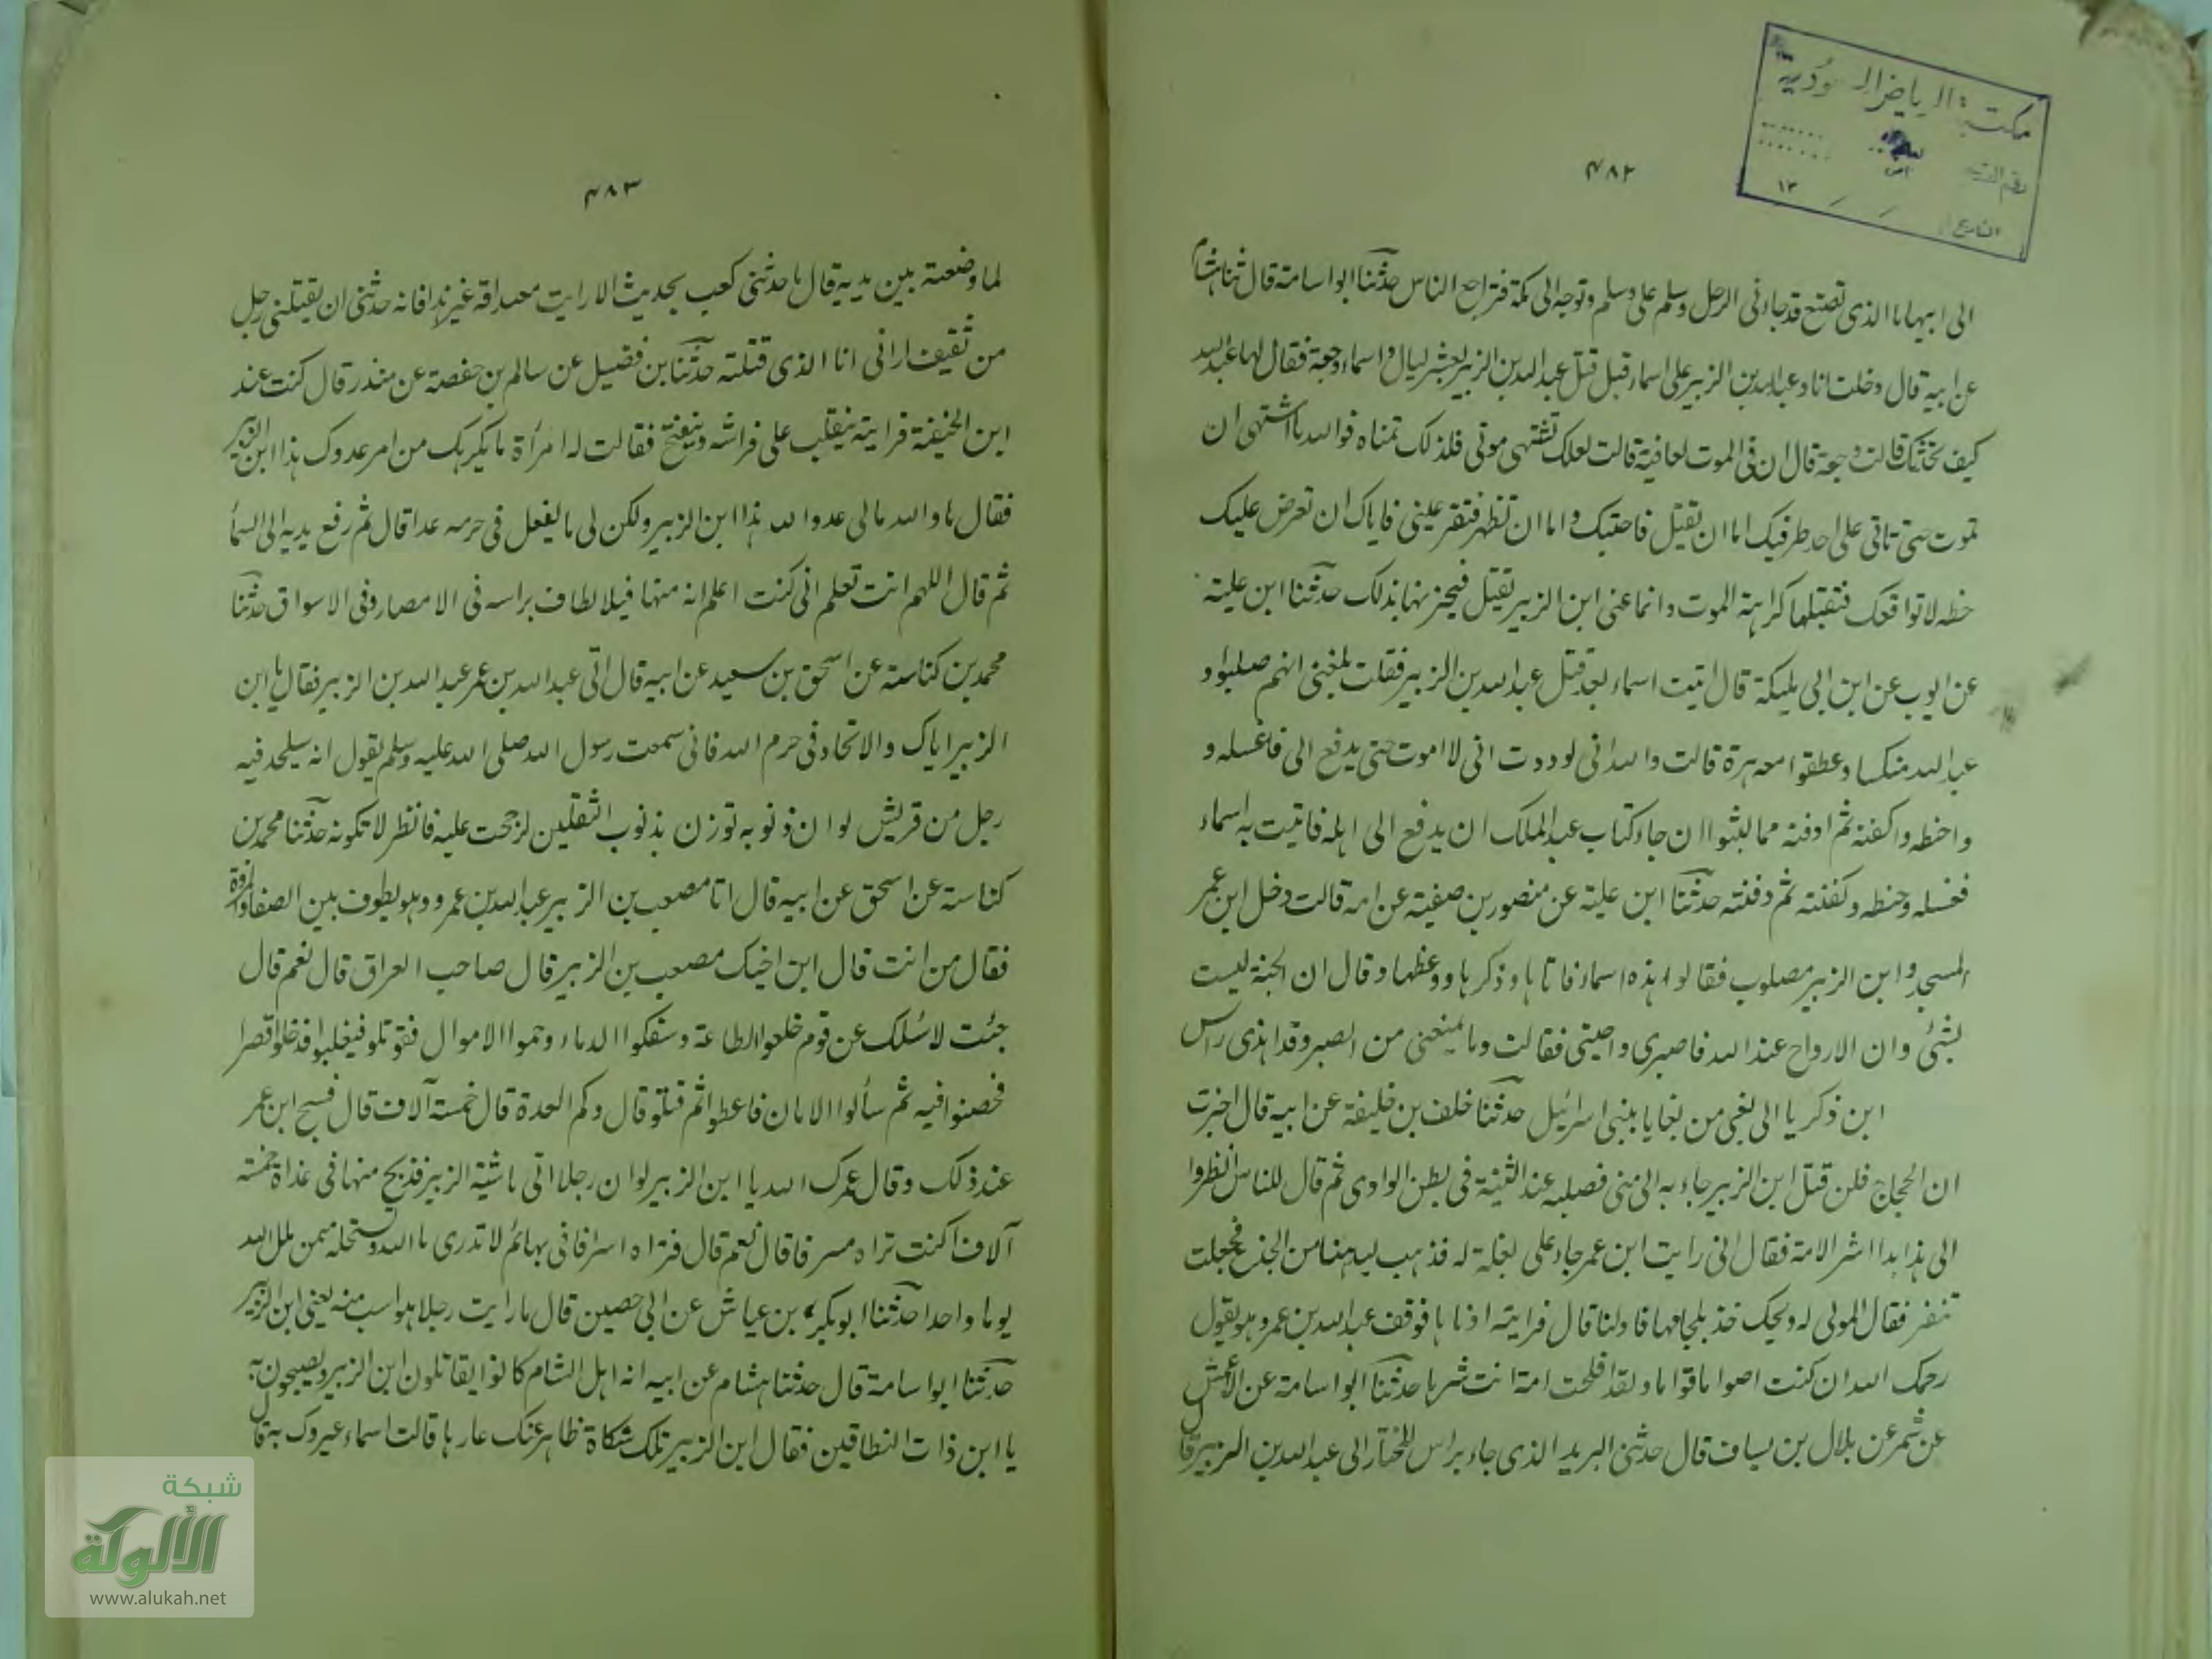 مكتبة الرياض السعودية
رقم القيد
التاريخ
١٣
٤٨٢
الى ابيها ما الذى تصنع قد جاءنى الرجل وسلم على وسلم وتوجه الى مكة فتراجع الناس حدثنا ابو اسامة قال ثنا هشام
عن ابيه قال دخلت انا وعبد الله بن الزبير على اسماء قبل قتل عبد الله بن الزبير بعشر ليال واسماء وجعة فقال لها عبد الله
كيف تجدينك قالت وجعة قال ان فى الموت لعافية قالت لعلك تشتهى موتى فلذلك تمناه فوالله ما اشتهى ان
تموت حتى تاتى على احد طرفيك اما ان تقتل فاحتسبك واما ان تظهر فتقر عينى فاياك ان تعرض عليك
خطه لا توافقك فتقبلها كراهة الموت وانما عنى ابن الزبير يقتل فيحزنها بذلك حدثنا ابن علية
عن ايوب عن ابن ابى مليكة قال اتيت اسماء بعد قتل عبد الله بن الزبير فقلت بلغنى انهم صلبوا و
عبد الله منكسا وعطقوا معه هرة قالت والله انى لوددت انى لا اموت حتى يدفع الى فاغسله و
واحنطه واكفنه ثم ادفنه مما لبثوا ان جاء كتاب عبد الملك ان يدفع الى اهله فاتيت به اسماء
فغسله وحنطه وكفنته ثم دفنته حدثنا ابن علية عن منصور بن صفية عن امه قالت دخل ابن عمر
المسجد وابن الزبير مصلوب فقالوا هذه اسماء فاتاها وذكرها ووعظها وقال ان الجثة ليست
بشئ وان الارواح عند الله فاصبرى واحتسبى فقالت وما يمنعنى من الصبر وقد اهدى راس
ابن ذكريا الى بغى من بغايا بنى اسرائيل حدثنا خلف بن خليفة عن ابيه قال اخبرت
ان الحجاج فلن قتل ابن الزبير جاء به الى منى فصلبه عند الثنية فى بطن الوادى ثم قال للناس انظروا
الى هذا هذا شر الامة فقال انى رايت ابن عمر جاء على بغلة له فذهب ليدنها من الجذع فجعلت
تنفر فقال لمولى له ويحك خذ بلجامها فادنها قال فرايته ادناها فوقف عبد الله بن عمر وهو يقول
رحمك الله ان كنت لصواما قواما ولقد افلحت امة انت شرها حدثنا ابو اسامة عن الاعمش
عن شمر عن هلال بن يساف قال حدثنى البريد الذى جاء براس المختار الى عبد الله بن الزبير قال
٤٨٣
لما وضعته بين يديه قال ما حدثنى كعب بحديث الا رايت مصداقه غير هذا فانه حدثنى ان يقتلنى رجل
من ثقيف ارانى انا الذى قتلته حدثنا بن فضيل عن سالم بن حفصة عن منذر قال كنت عند
ابن الحنيفة فرايته يتقلب على فراشه وينفخ فقالت له امرأة ما يكربك من امر عدوك هذا ابن الزبير
فقال ما والله مالى عدو الله هذا ابن الزبير ولكن لى ما يفعل فى حرمه غدا قال ثم رفع يديه الى السماء
ثم قال اللهم انت تعلم انى كنت اعلم انه منها قيلا يطاف براسه فى الامصار وفى الاسواق حدثنا
محمد بن كناسته عن اسحق بن سعيد عن ابيه قال اتى عبد الله بن عمر عبد الله بن الزبير فقال يا ابن
الزبير اياك والالحاد فى حرم الله فانى سمعت رسول الله صلى الله عليه وسلم يقول انه سيلحد فيه
رجل من قريش لو ان ذنوبه توزن بذنوب الثقلين لرجحت عليه فانظر لا تكونه حدثنا محمد بن
كناسته عن اسحق عن ابيه قال اتا مصعب بن الزبير عبد الله بن عمر وهو يطوف بين الصفا والمروة
فقال من انت قال ابن اخيك مصعب بن الزبير قال صاحب العراق قال نعم قال
جئت لاسئلك عن قوم خلعوا الطاعة وسفكوا الدماء وحموا الاموال فقوتلو فيغلبوا فدخلوا قصرا
فحصنوا فيه ثم سألوا الامان فاعطوا ثم قتلو قال وكم العدة قال خمسة آلاف قال فسبح ابن عمر
عند ذلك وقال عمرك الله يا ابن الزبير لو ان رجلا اتى ماشية الزبير فذبح منها فى غداة خمسة
آلاف اكنت تراه مسرفا قال نعم قال فتراه اسرافا فى بهائم لا تدرى ما الله وتستحله ممن هلل الله
يوما واحدا حدثنا ابو بكر بن عياش عن ابى حصين قال ما رايت رجلا هو اسب منه يعنى ابن الزبير
حدثنا ابو اسامة قال حدثنا هشام عن ابيه انه اهل الشام كانوا يقاتلون ابن الزبير ويصيحون به
يا ابن ذات النطاقين فقال ابن الزبير تلك شكاة ظاهر عنك عارها قالت اسماء عيروك به قال
شبكة
الألوكة
www.alukah.net